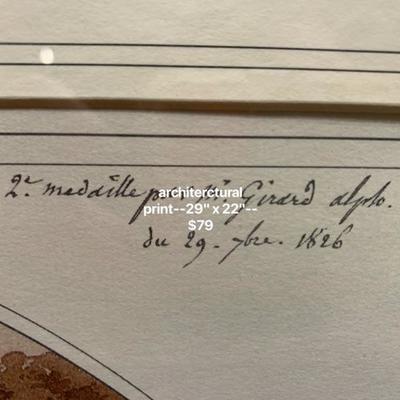 2e. medaille Girard alpho.
du 29. 7bre. 1826
architerctural
print--29" x 22"--
$79